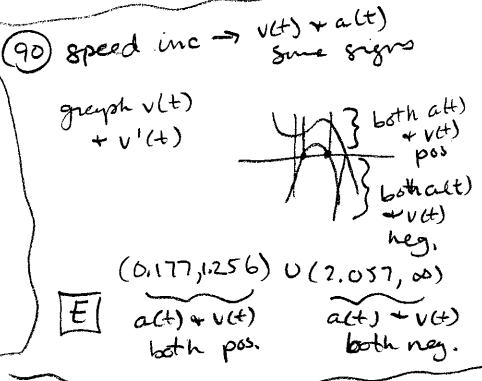 90 speed inc → v(t) + a(t)
same signs
graph v(t)
+ v'(t)
both a(t)
+ v(t)
pos
both a(t)
+ v(t)
neg.
(0.177,1.256) ∪ (2.057, ∞)
E
a(t) + v(t)
both pos.
a(t) + v(t)
both neg.